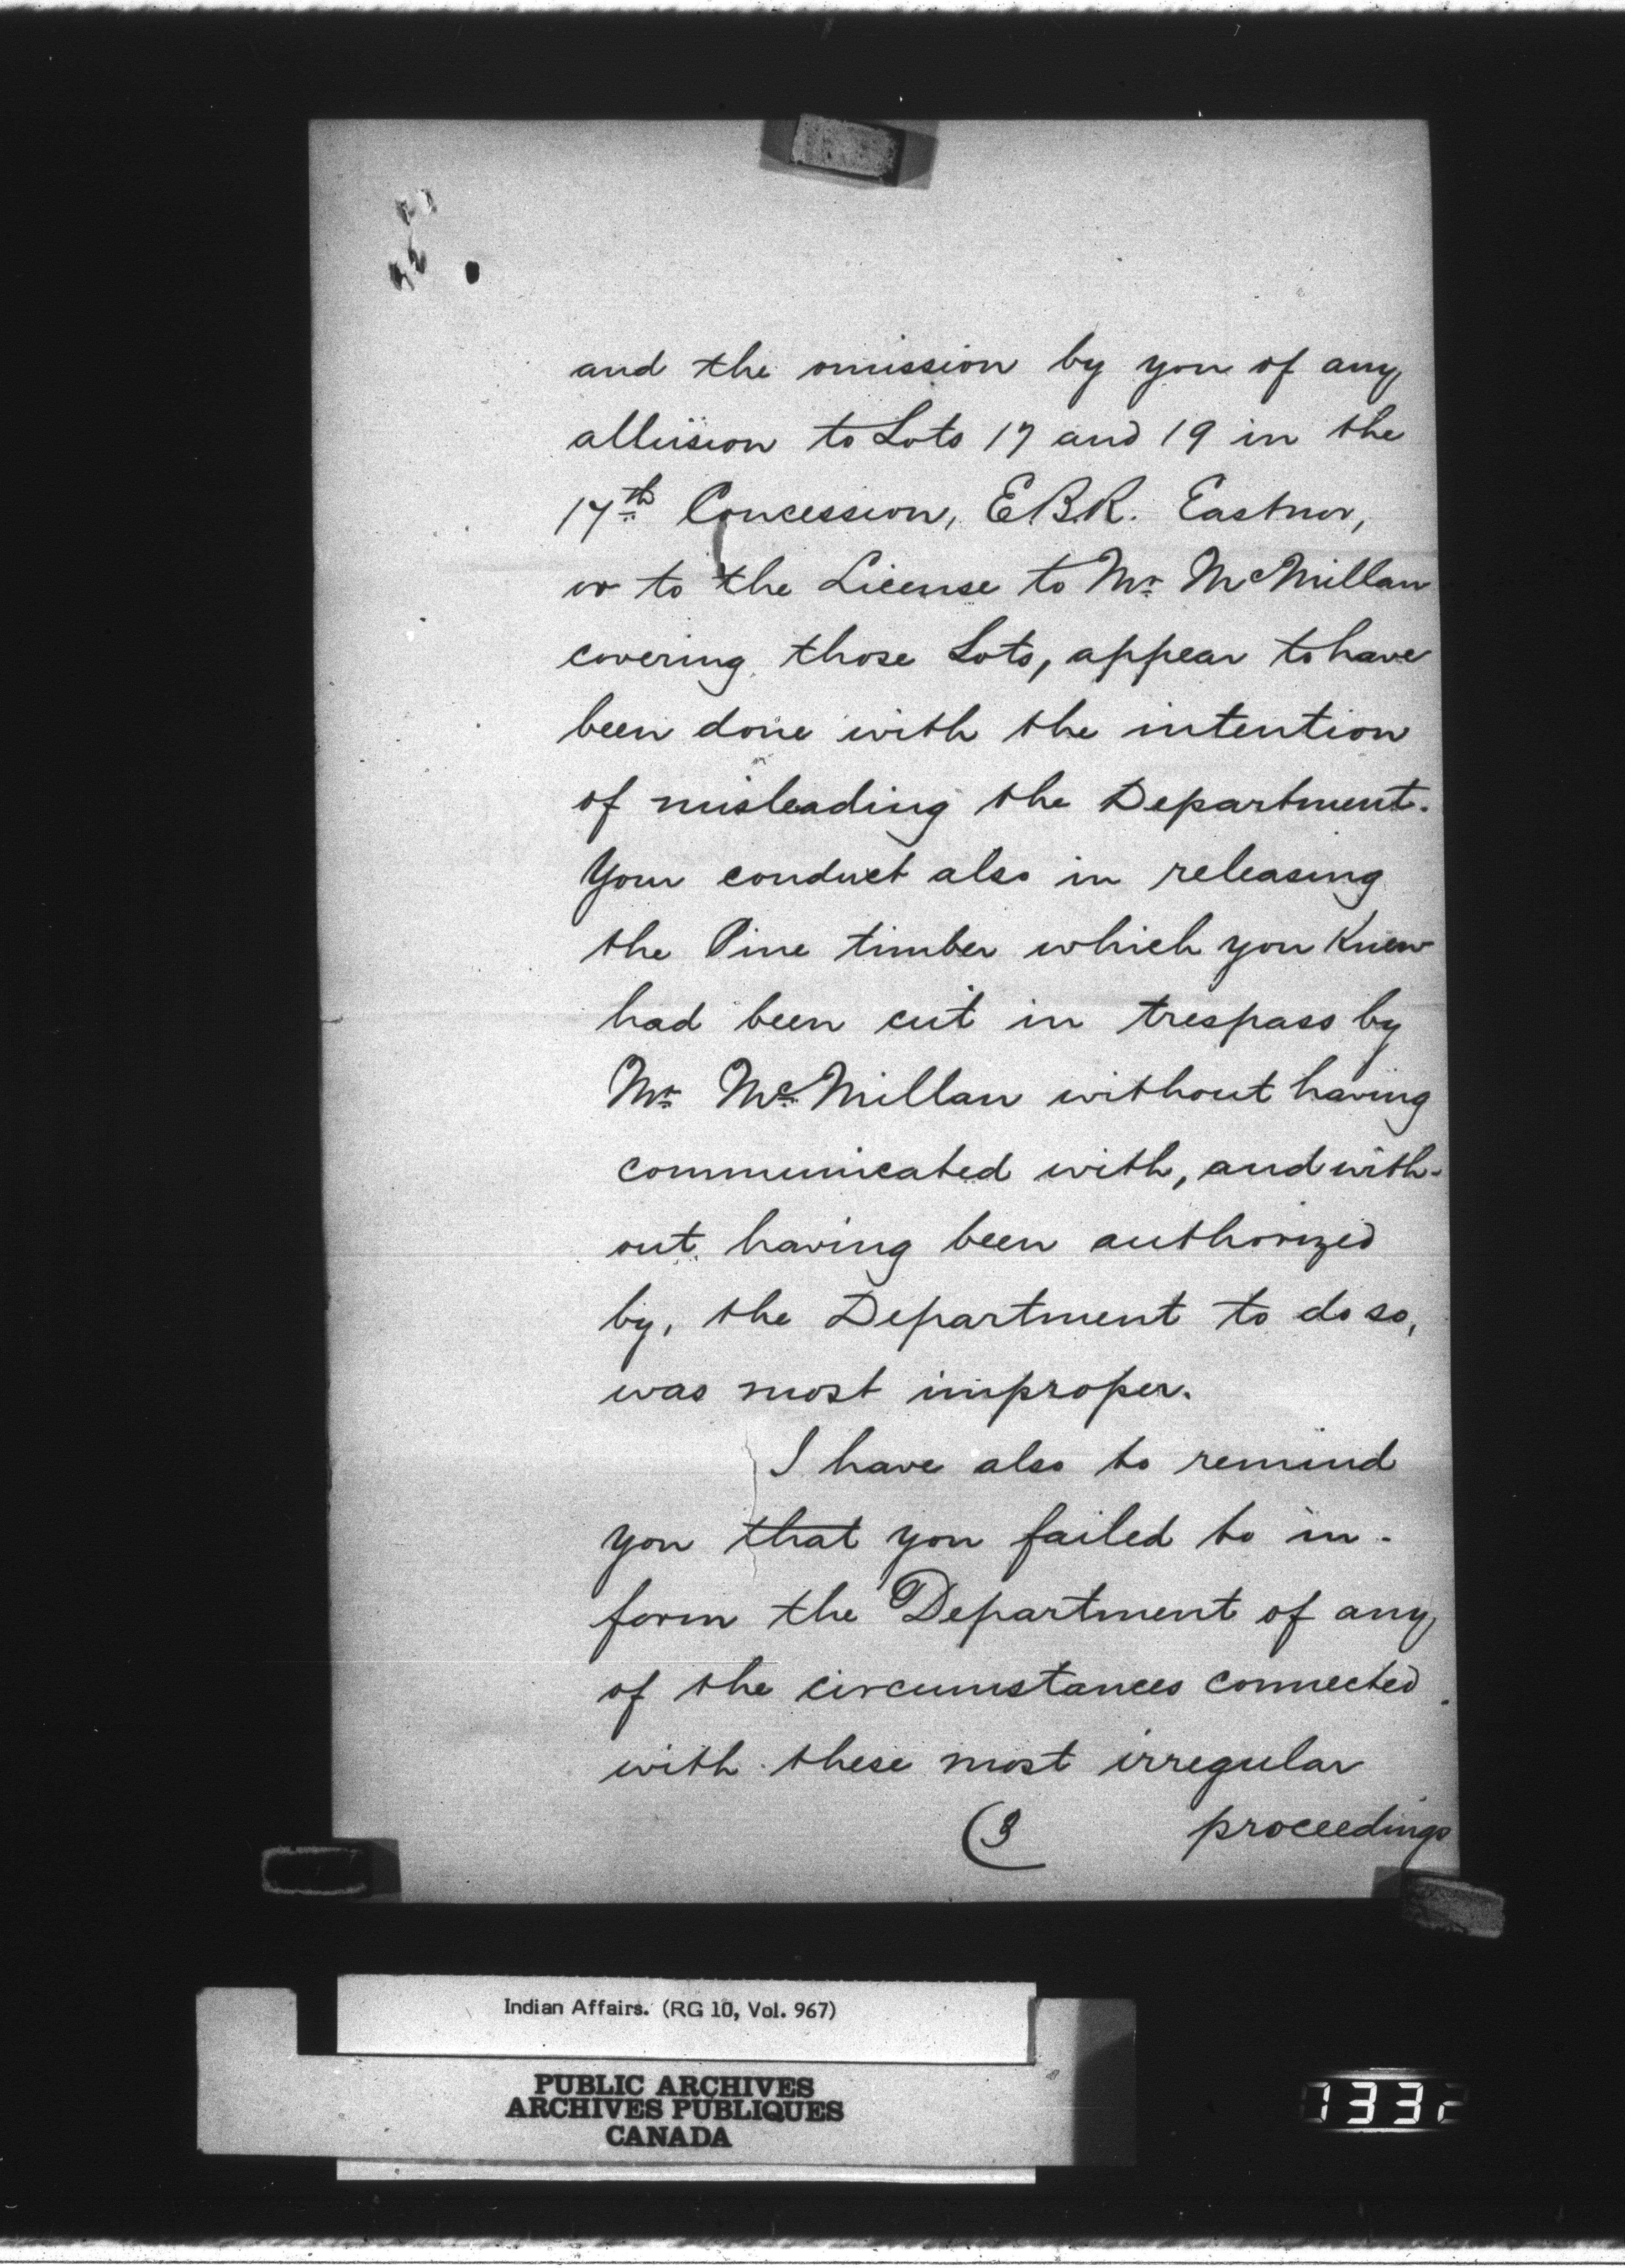 and the omission by you of any
allusion to Lots 17 and 19 in the
17th Concession, E.B.R. Eastnor,
or to the License to Mr McMillan
covering those Lots, appear to have
been done with the intention
of misleading the Department.
Your conduct also in releasing
the Pine timber which you knew
had been cut in trespass by
Mr McMillan without having
communicated with, and with-
out having been authorized
by, the Department to do so,
was most improper.
I have also to remind
you that you failed to in-
form the Department of any
of the circumstances connected
with these most irregular
(3 proceedings
Indian Affairs. (RG 10, Vol. 967)
PUBLIC ARCHIVES
ARCHIVES PUBLIQUES
CANADA